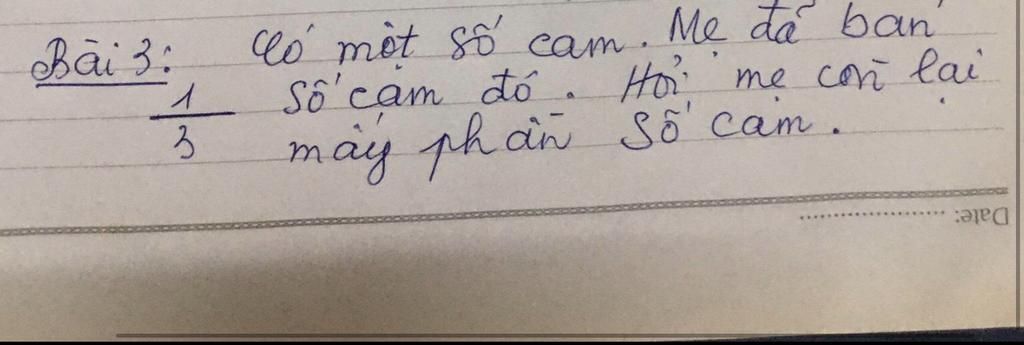 Bài 3: Có một số cam. Mẹ đã bán
1/3 số cam đó. Hỏi mẹ còn lại
mấy phần số cam.
Date: ....................